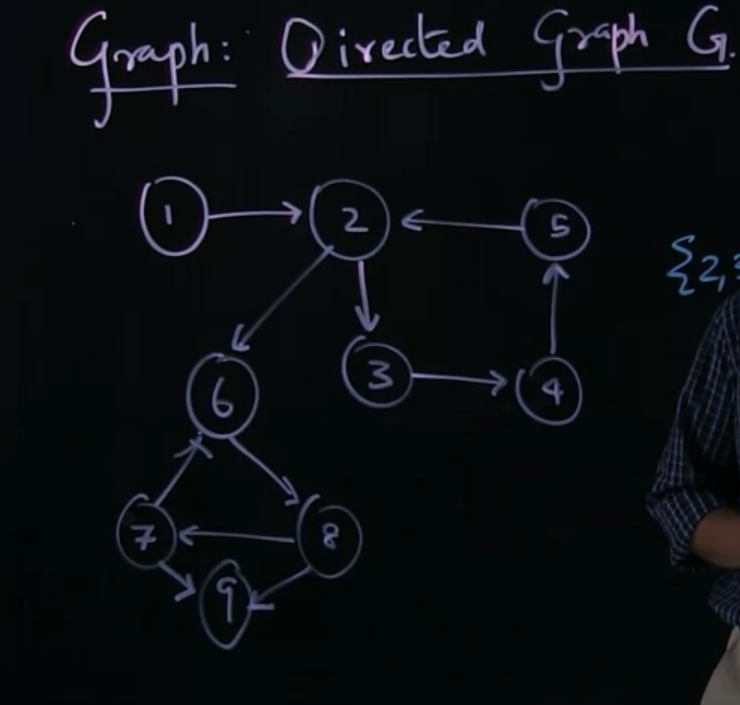 Graph: Directed Graph G.
1 2 5
{2,
6 3 4
7 8
9